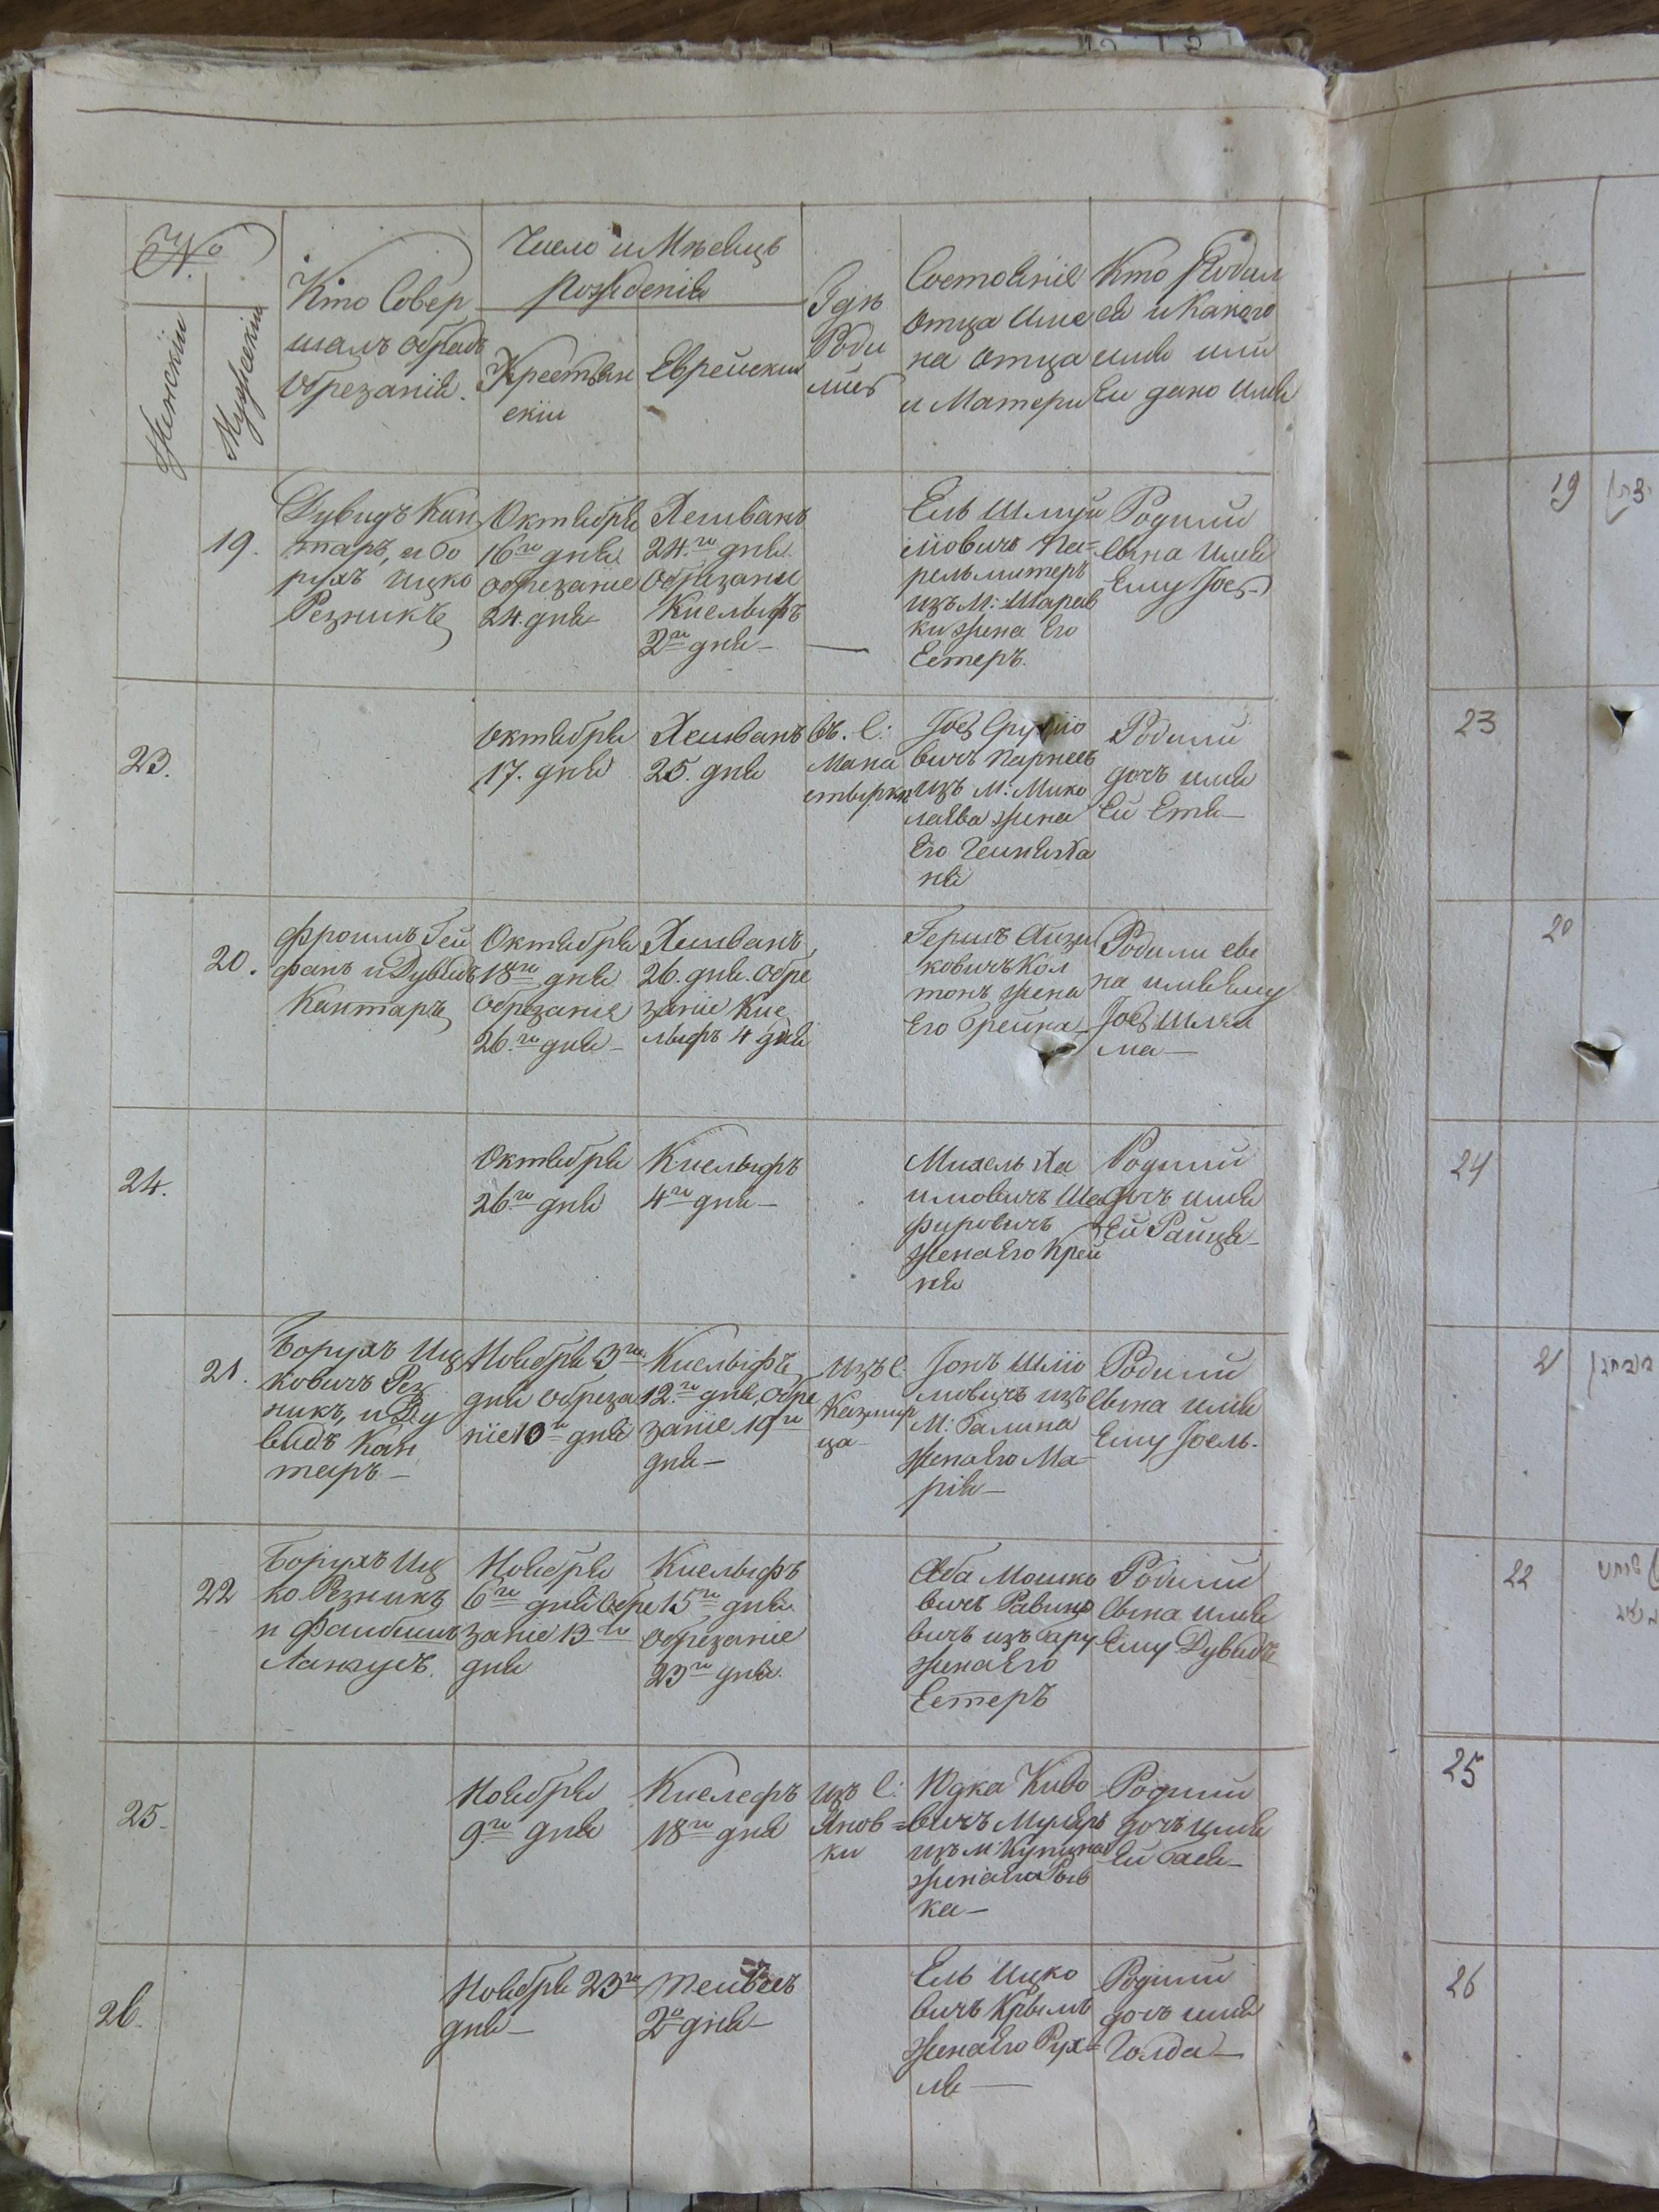 №
Женскiи
Мужескiи
Кто Совер
шалъ обрядъ
Обрезанiя.
Число и Мѣсяцъ
рожденiя
Крестьян
скiи
Еврейскии
Гдѣ
Роди
лисъ
Состоянiе
отца Име
на отца
и Матери
Кто Родил
ся и Какого
имя или
Ей дано имя
19.
Дувидъ Кан
таръ, и бо
рухъ ицко
Резникъ
Октября
16го дня
обрезанiе
24. дня
Хешванъ
24.го дня
обрезани
Киельвфъ
2го дня
Ель Шмуй
ловичъ
изъ М: Шарав
ки жена Его
Естеръ.
Родили
сына имя
Ему Iос
23.
октября
17. дня
Хешванъ
25. дня
Въ. С:
Мана
стырке
вичъ Парнесъ
изъ М: Мико
лаева жена
Его
ня
Родили
дочь имя
Ей Етя
20.
Фроимъ Гей
фанъ и Дувидъ
Кантаръ
Октября
18го дня
Обрезанiе
26.го дня
Хешванъ
26. дня. обре
занiе Кис
львфъ 4 дня
Гершъ Айзи
ковичъ Кол
тонъ жена
Его Брейна
Родили сы
на имя Ему
Iос Шлио
ма
24.
Октября
26го дня
Киельвфъ
4го дня
Михель Ха
имовичъ Ша
фировичъ
жена Его Крей
ня
Родили
дочъ имя
Ей Райця
21.
Борухъ Иц
ковичъ Рез
никъ, и Ду
видъ Кан
таръ
Ноября 3го
дня обреза
нiе 10го дня
Киельвфъ
12.го дня, Обре
занiе 19го
дня
изъ С.
Казмир
ца
Iонъ Шлiо
мовичъ изъ
М: Галина
жена Его Ма=
рiя
Родили
сына имя
Ему Iоель.
22
Борухъ Иц
ко Резникъ
и Фаибишъ
Лангусъ.
Ноября
6го дня Обре
занiе 13го
дня
Киельвфъ
15го дня
обрезанiе
23го дня.
Аба Мошко
вичъ Равино
вичъ изъ бару
жена Его
Естеръ
Родили
сына имя
Ему Дувидъ
25.
Ноября
9.го дня
Киелефъ
18го дня
изъ С:
Янов=
ки
Юдка Киво
вичъ Муляръ
изъ М: Купина
жена Его Рыв
ка
Родили
дочъ имя
Ей Бася
26.
Ноября 23го
дня
Тейвесъ
2го дня
Ель Ицко
вичъ Крымъ
жена Его Рух=
ля
Родили
дочъ имя
Голда
19
23
20
24
21
22
25
26